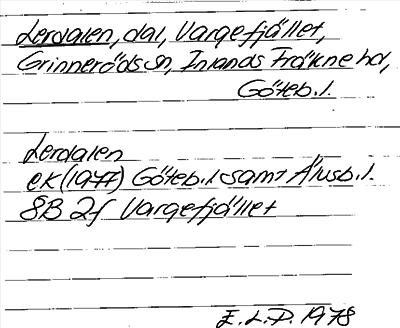 Lerdalen, dal, Vargefjället,
Grinneröds sn, Inlands Fräkne hd,
Göteb. l.
Lerdalen
ek (1977) Göteb. l samt Älvsb. l.
8B 2f Vargefjället
E. L. P. 1978